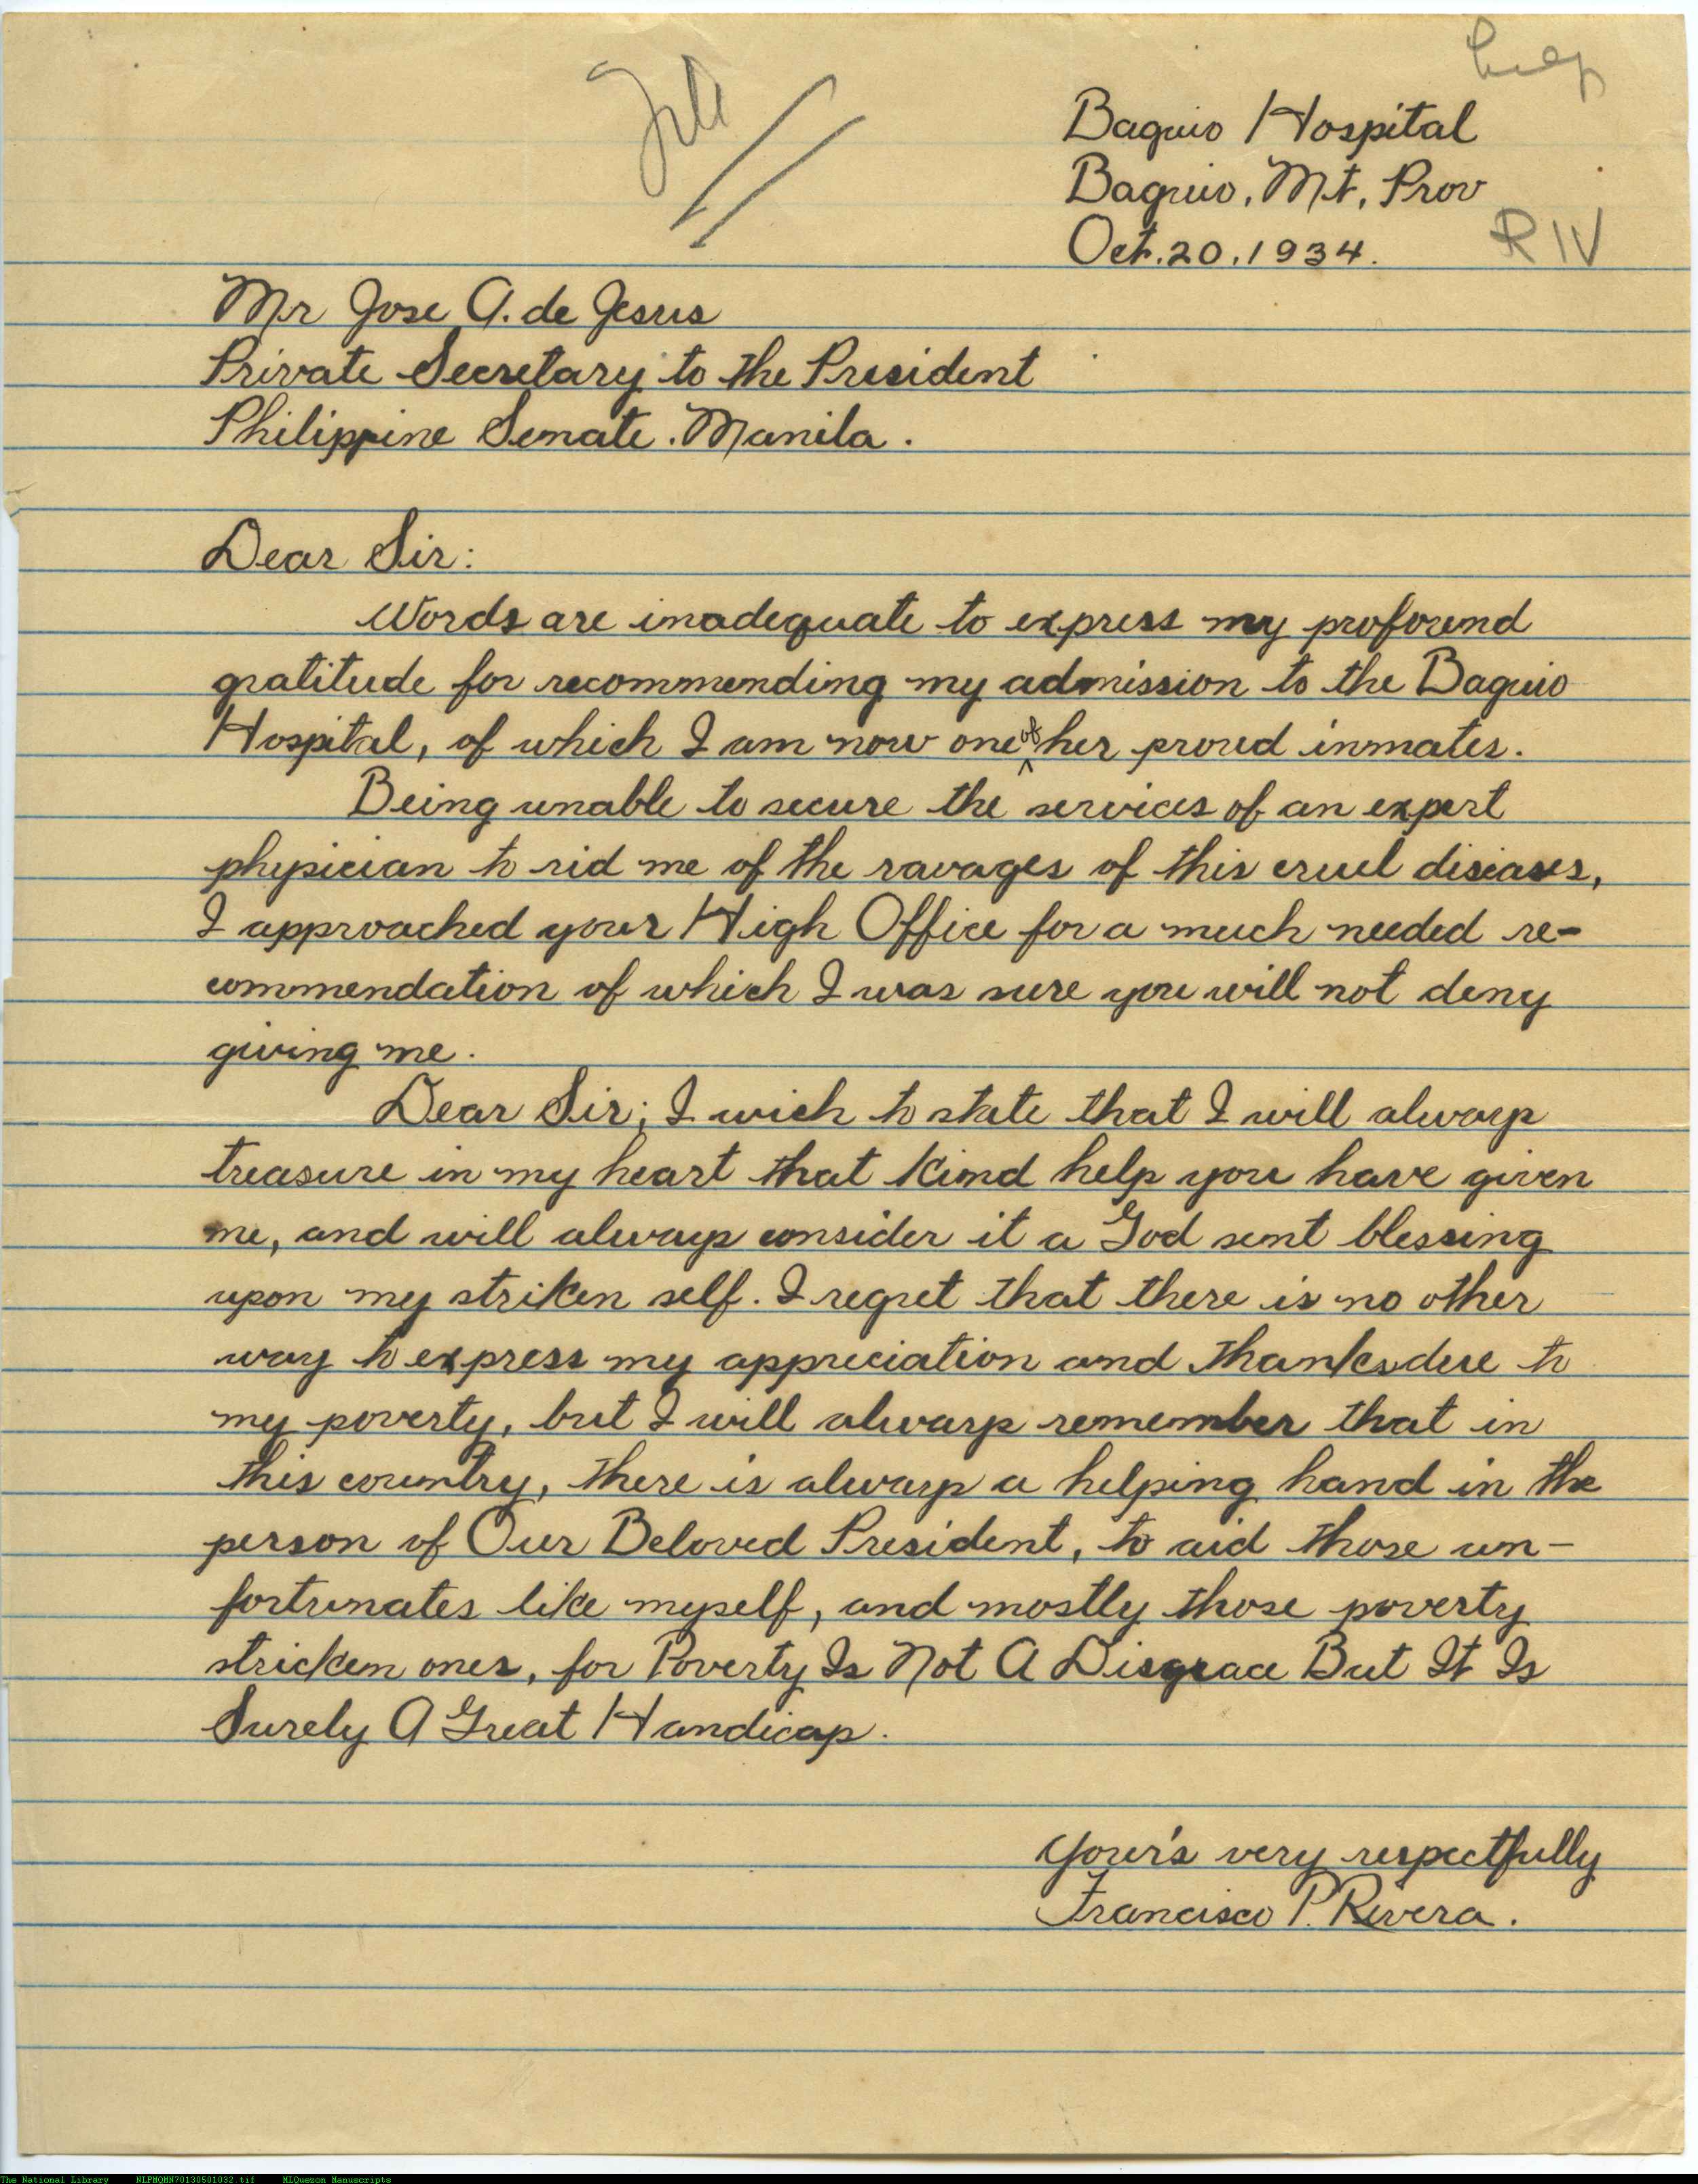 help
File
Baguio Hospital
Baguio, Mt. Prov
Oct. 20, 1934.
RIV
Mr Jose A. de Jesus
Private Secretary to the President
Philippine Senate. Manila.
Dear Sir:
Words are inadequate to express my profound
gratitude for recommending my admission to the Baguio
Hospital, of which I am now one of her proud inmates.
Being unable to secure the services of an expert
physician to rid me of the ravages of this cruel diseases,
I approached your High Office for a much needed re-
commendation of which I was sure you will not deny
giving me.
Dear Sir; I wish to state that I will always
treasure in my heart that kind help you have given
me, and will always consider it a God sent blessing
upon my striken self. I regret that there is no other
way to express my appreciation and thanks due to
my poverty, but I will always remember that in
this country, there is always a helping hand in the
person of Our Beloved President, to aid those un-
fortunates like myself, and mostly those poverty
stricken ones, for Poverty Is Not A Disgrace But It Is
Surely A Great Handicap.
Your's very respectfully
Francisco P. Rivera.
The National Library NLPMQMN70130501032.tif MLQuezon Manuscripts